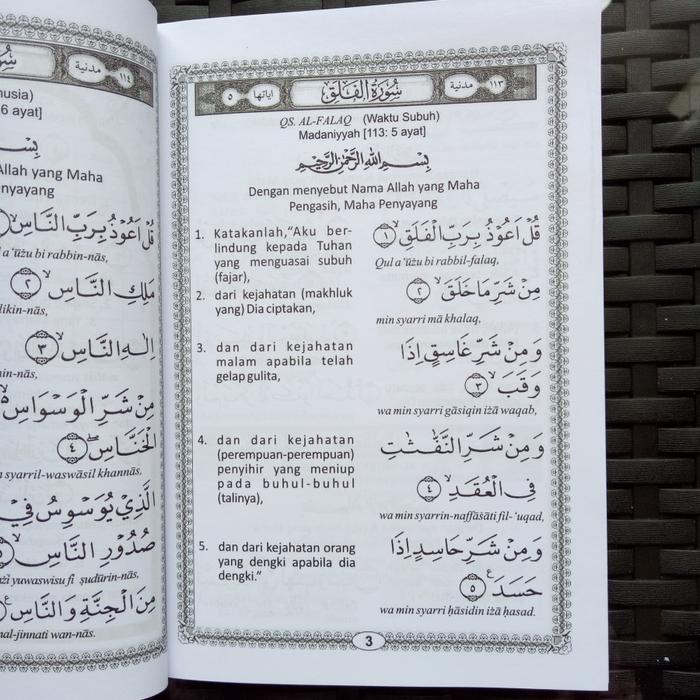 سُوْرَةُ
مدنية
١١٤
usia)
6 ayat]
بِسْـ
Allah yang Maha
nyayang
قُلْ اَعُوْذُ بِرَبِّ النَّاسِۙ
Qul a'ūżu bi rabbin-nās,
مَلِكِ النَّاسِۙ ٢
likin-nās,
اِلٰهِ النَّاسِۙ ٣
in-nās,
مِنْ شَرِّ الْوَسْوَاسِ ەۙ
الْخَنَّاسِۖ ٤
n syarril-waswāsil khannās,
الَّذِيْ يُوَسْوِسُ فِيْ
صُدُوْرِ النَّاسِۙ ٥
żī yuwaswisu fī ṣudūrin-nās,
مِنَ الْجِنَّةِ وَالنَّاسِ
nal-jinnati wan-nās.
١١٣
مدنية
سُوْرَةُ الْفَلَقِ
اياتها
٥
QS. AL-FALAQ (Waktu Subuh)
Madaniyyah [113: 5 ayat]
بِسْمِ اللّٰهِ الرَّحْمٰنِ الرَّحِيْمِ
Dengan menyebut Nama Allah yang Maha
Pengasih, Maha Penyayang
1. Katakanlah,"Aku ber-
lindung kepada Tuhan
yang menguasai subuh
(fajar),
قُلْ اَعُوْذُ بِرَبِّ الْفَلَقِۙ ١
Qul a'ūżu bi rabbil-falaq,
2. dari kejahatan (makhluk
yang) Dia ciptakan,
مِنْ شَرِّ مَا خَلَقَۙ ٢
min syarri mā khalaq,
3. dan dari kejahatan
malam apabila telah
gelap gulita,
وَمِنْ شَرِّ غَاسِقٍ اِذَا
وَقَبَۙ ٣
wa min syarri gāsiqin iżā waqab,
4. dan dari kejahatan
(perempuan-perempuan)
penyihir yang meniup
pada buhul-buhul
(talinya),
وَمِنْ شَرِّ النَّفّٰثٰتِ
فِى الْعُقَدِۙ ٤
wa min syarrin-naffāṡāti fil-'uqad,
5. dan dari kejahatan orang
yang dengki apabila dia
dengki."
وَمِنْ شَرِّ حَاسِدٍ اِذَا
حَسَدَ ࣖ ٥
wa min syarri ḥāsidin iżā ḥasad.
3